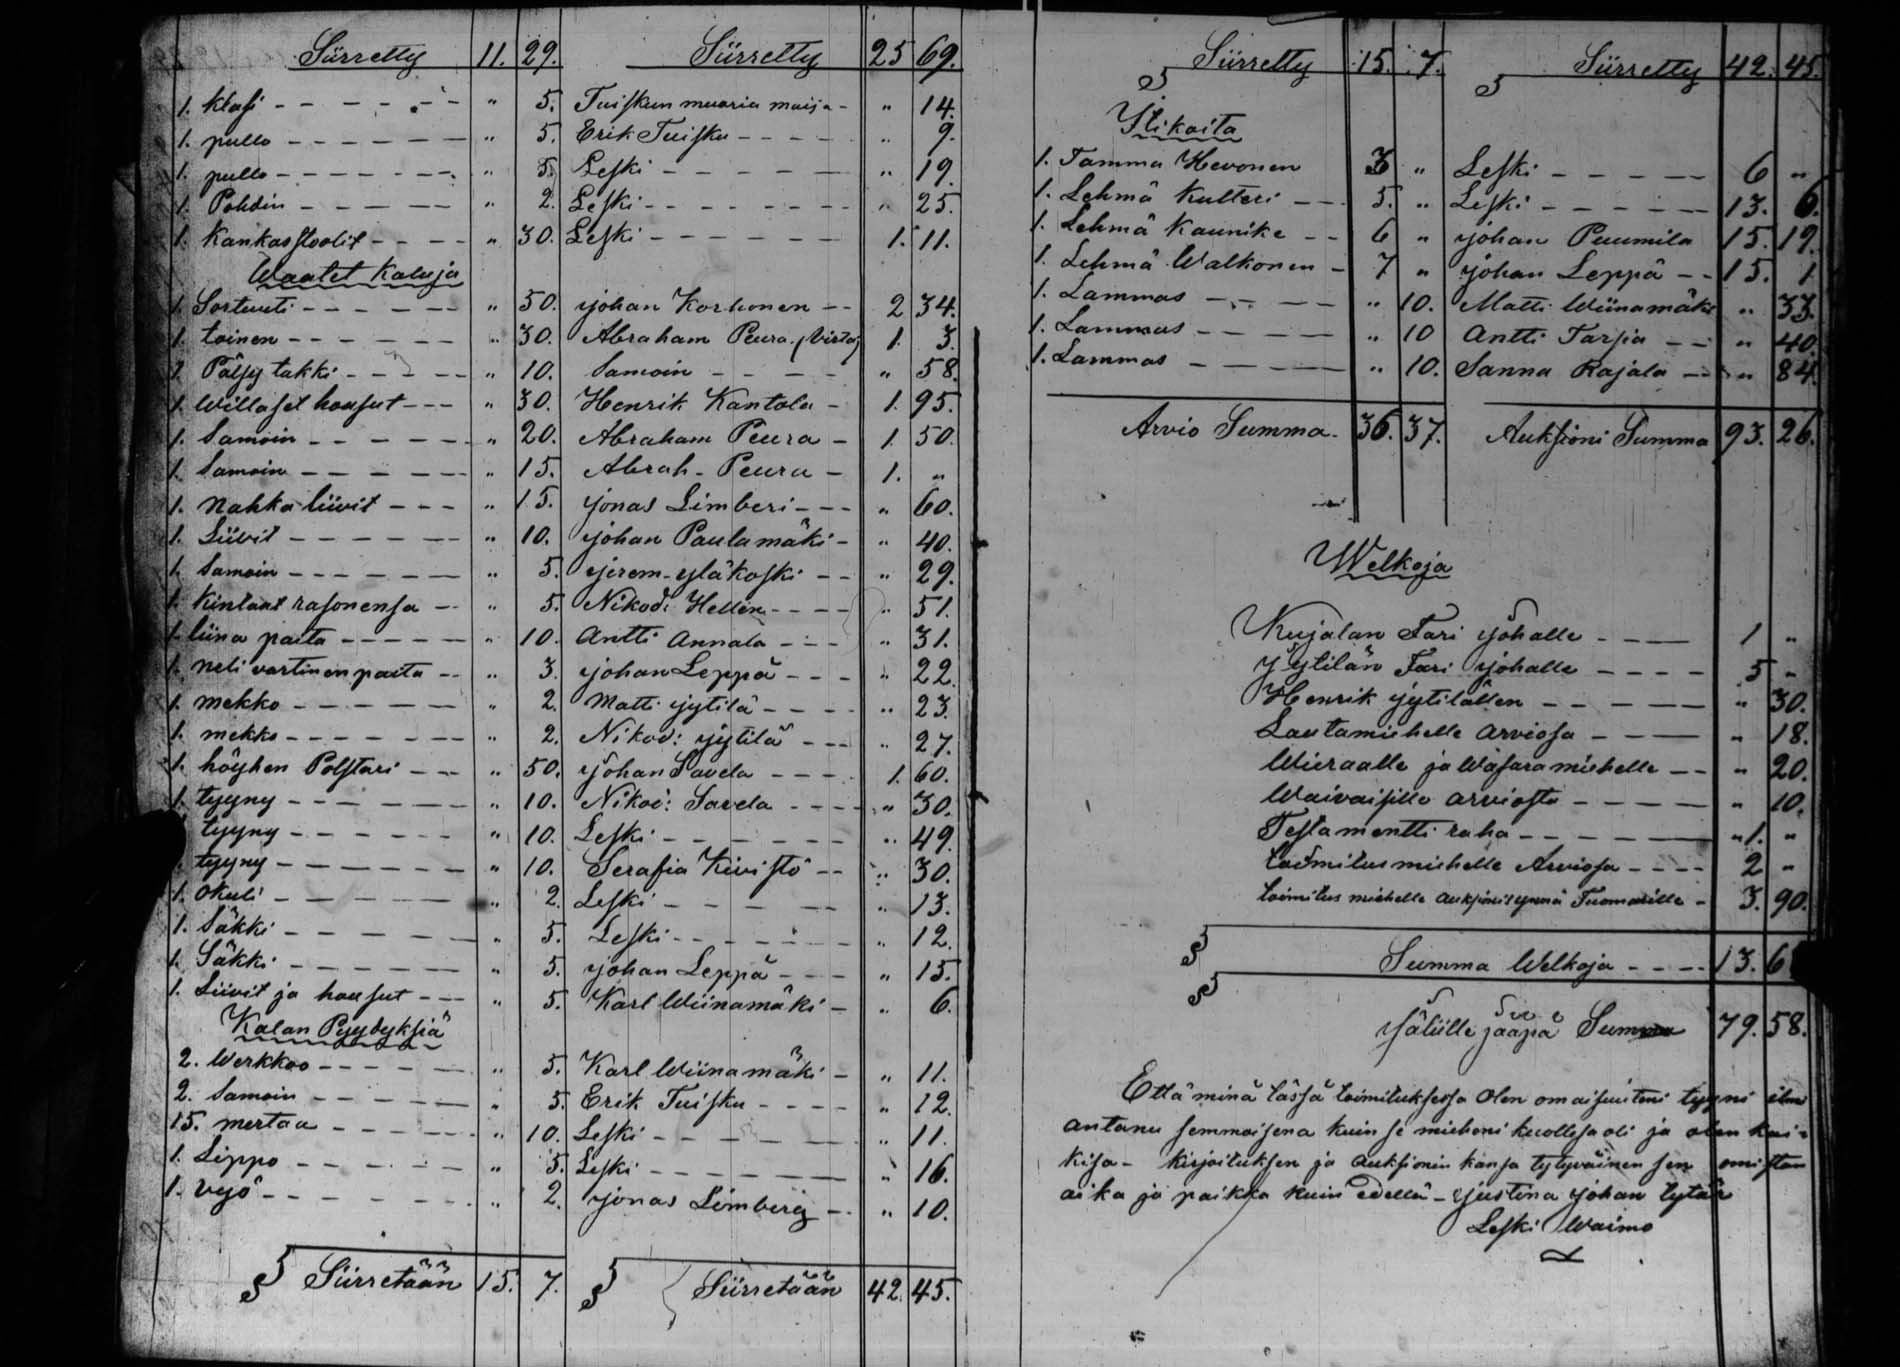 Siirretty 11. 29. Siirretty 25 69.
1. klasi " 5. Tuiskun muoria maija " 14.
1. pullo " 5. Erik Tuisku " 9.
1. pullo " 5. Leski " 19.
1. Pohdin " 2. Leski " 25.
1. Kankasstoolit " 30. Leski 1. 11.
Waatet Kaluja
1. Sortuuti " 50. johan Korhonen 2 34.
1. toinen " 30. Abraham Peura (Virta) 1. 3.
1. Pälsy takki " 10. Samoin " 58.
1. Willaset housut " 30. Henrik Kantola 1. 95.
1. Samoin " 20. Abraham Peura 1. 50.
1. Samoin " 15. Abrah. Peura 1. "
1. Nahka liivit " 15. jonas Limberi " 60.
1. Liivit " 10. johan Paulamäki " 40.
1. Samoin " 5. jerem. yläkoski " 29.
1. Kintaat rasonensa " 5. Nikod: Hellin " 51.
1. liina paita " 10. Antti Annala " 31.
1. neli vartinen paita " 3. johan Leppä " 22.
1. mekko " 2. Matti jytilä " 23.
1. mekko " 2. Nikod: jytilä " 27.
1. höyhen Polstari " 50. johan Savela 1. 60.
1. tyyny " 10. Nikod: Savela " 30.
tyyny " 10. Leski " 49.
tyyny " 10. Serafia Kivistö " 30.
1. Okuli " 2. Leski " 13.
1. Säkki " 5. Leski " 12.
1. Säkki " 5. johan Leppä " 15.
1. Liivit ja housut " 5. Karl Wiinamäki " 6.
Kalan Pyydyksiä
2. Werkkoo " 5. Karl Wiinamäki " 11.
2. Samoin " 5. Erik Tuisku " 12.
15. mertaa " 10. Leski " 11.
1. Lippo " 5. Leski " 16.
1. vyö " 2. jonas Limberg " 10.
Siirretään 15. 7. Siirretään 42. 45.
Siirretty 15. 7. Siirretty 42. 45.
Ylikaita
1. Tamma Hevonen 3 " Leski 6 "
1. Lehmä Kulteri 5. " Leski 13. 6.
1. Lehmä Kaunike 6 " johan Puumila 15. 19.
1. Lehmä Walkonen 7 " johan Leppä 15. 1
1. Lammas " 10. Matti Wiinamäki " 33.
1. Lammas " 10 Antti Tarsia " 40.
1. Lammas " 10. Sanna Rajala " 84.
Arvio Summa. 36. 37. Auksioni Summa 93. 26.
Welkoja
Kujalan Fari johalle 1 "
jytilän Fari johalle 5 "
Henrik jytilällen " 30.
Lautamiehelle arviosa " 18.
Wieraalle ja Wasaramiehelle " 20.
Waivaisille arviosta " 10.
Testamentti raha " 1. "
toimitusmiehelle Arviosa 2 "
toimitus miehelle auksioni Tuomarille 3. 90.
Summa Welkoja 13. 6
jäliille jääpä Summa 79. 58.
Että minä tässä toimituksessa olen omaisuuteni tyyni ilmi
antanu semmoisena kuin se mieheni kuollesa oli ja olen kai=
kisa- kirjoituksen ja auksionin kansa tytyväinen sen omistan
aika ja paikka kuin edellä - justina johan tytär
Leski Waimo